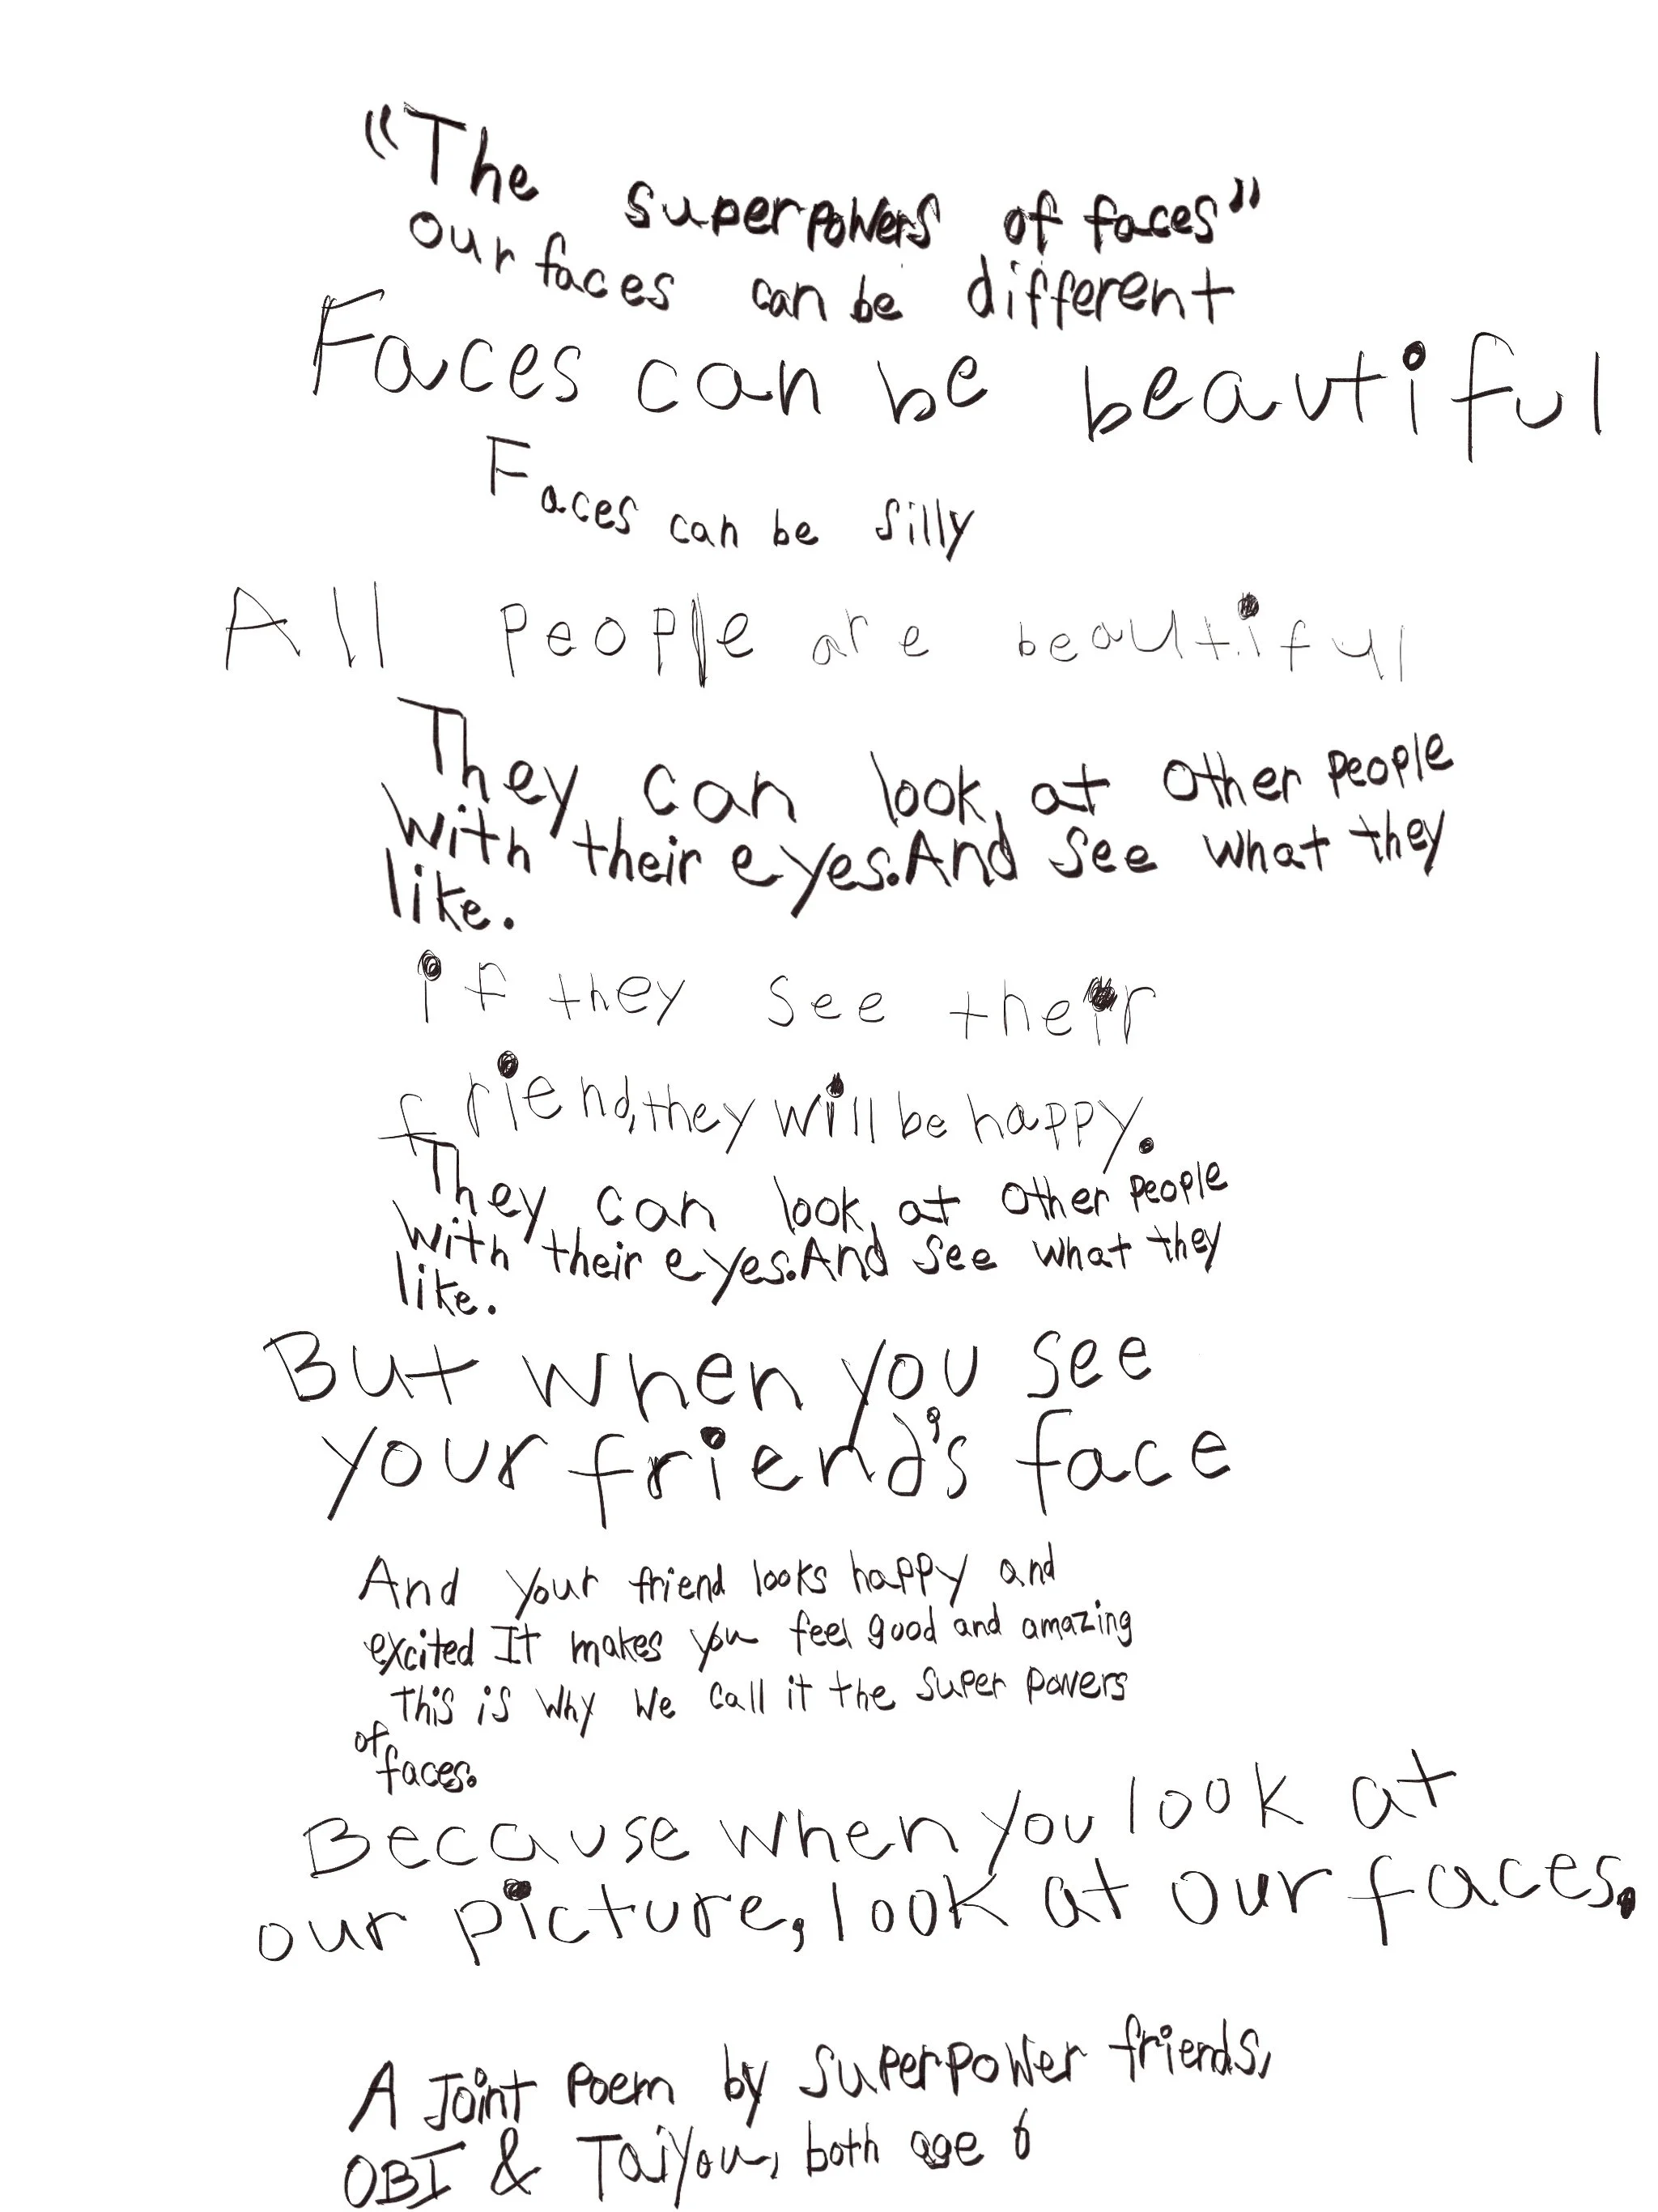 "The superpowers of faces"
our faces can be different
Faces can be beautiful
Faces can be silly
All people are beautiful
They can look at other people
with their eyes. And see what they
like.
if they see their
friend, they will be happy.
They can look at other people
with their eyes. And see what they
like.
But when you see
your friend's face
And your friend looks happy and
excited It makes you feel good and amazing
This is why we call it the super powers
of
faces.
Because when you look at
our picture, look at our faces.
A Joint Poem by superpower friends,
OBI & Taiyou, both age 6